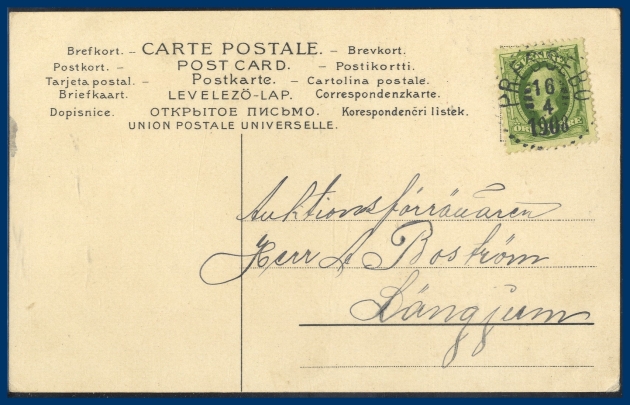 Brefkort. – CARTE POSTALE. – Brevkort.
Postkort. – POST CARD. – Postikortti.
Tarjeta postal. – Postkarte. – Cartolina postale.
Briefkaart. LEVELEZŐ-LAP. Correspondenzkarte.
Dopisnice. ОТКРЫТОЕ ПИСЬМО. Korespondenčri listek.
UNION POSTALE UNIVERSELLE.
16
4
1908
Auktionsförrättaren
Herr A Boström
Längjum